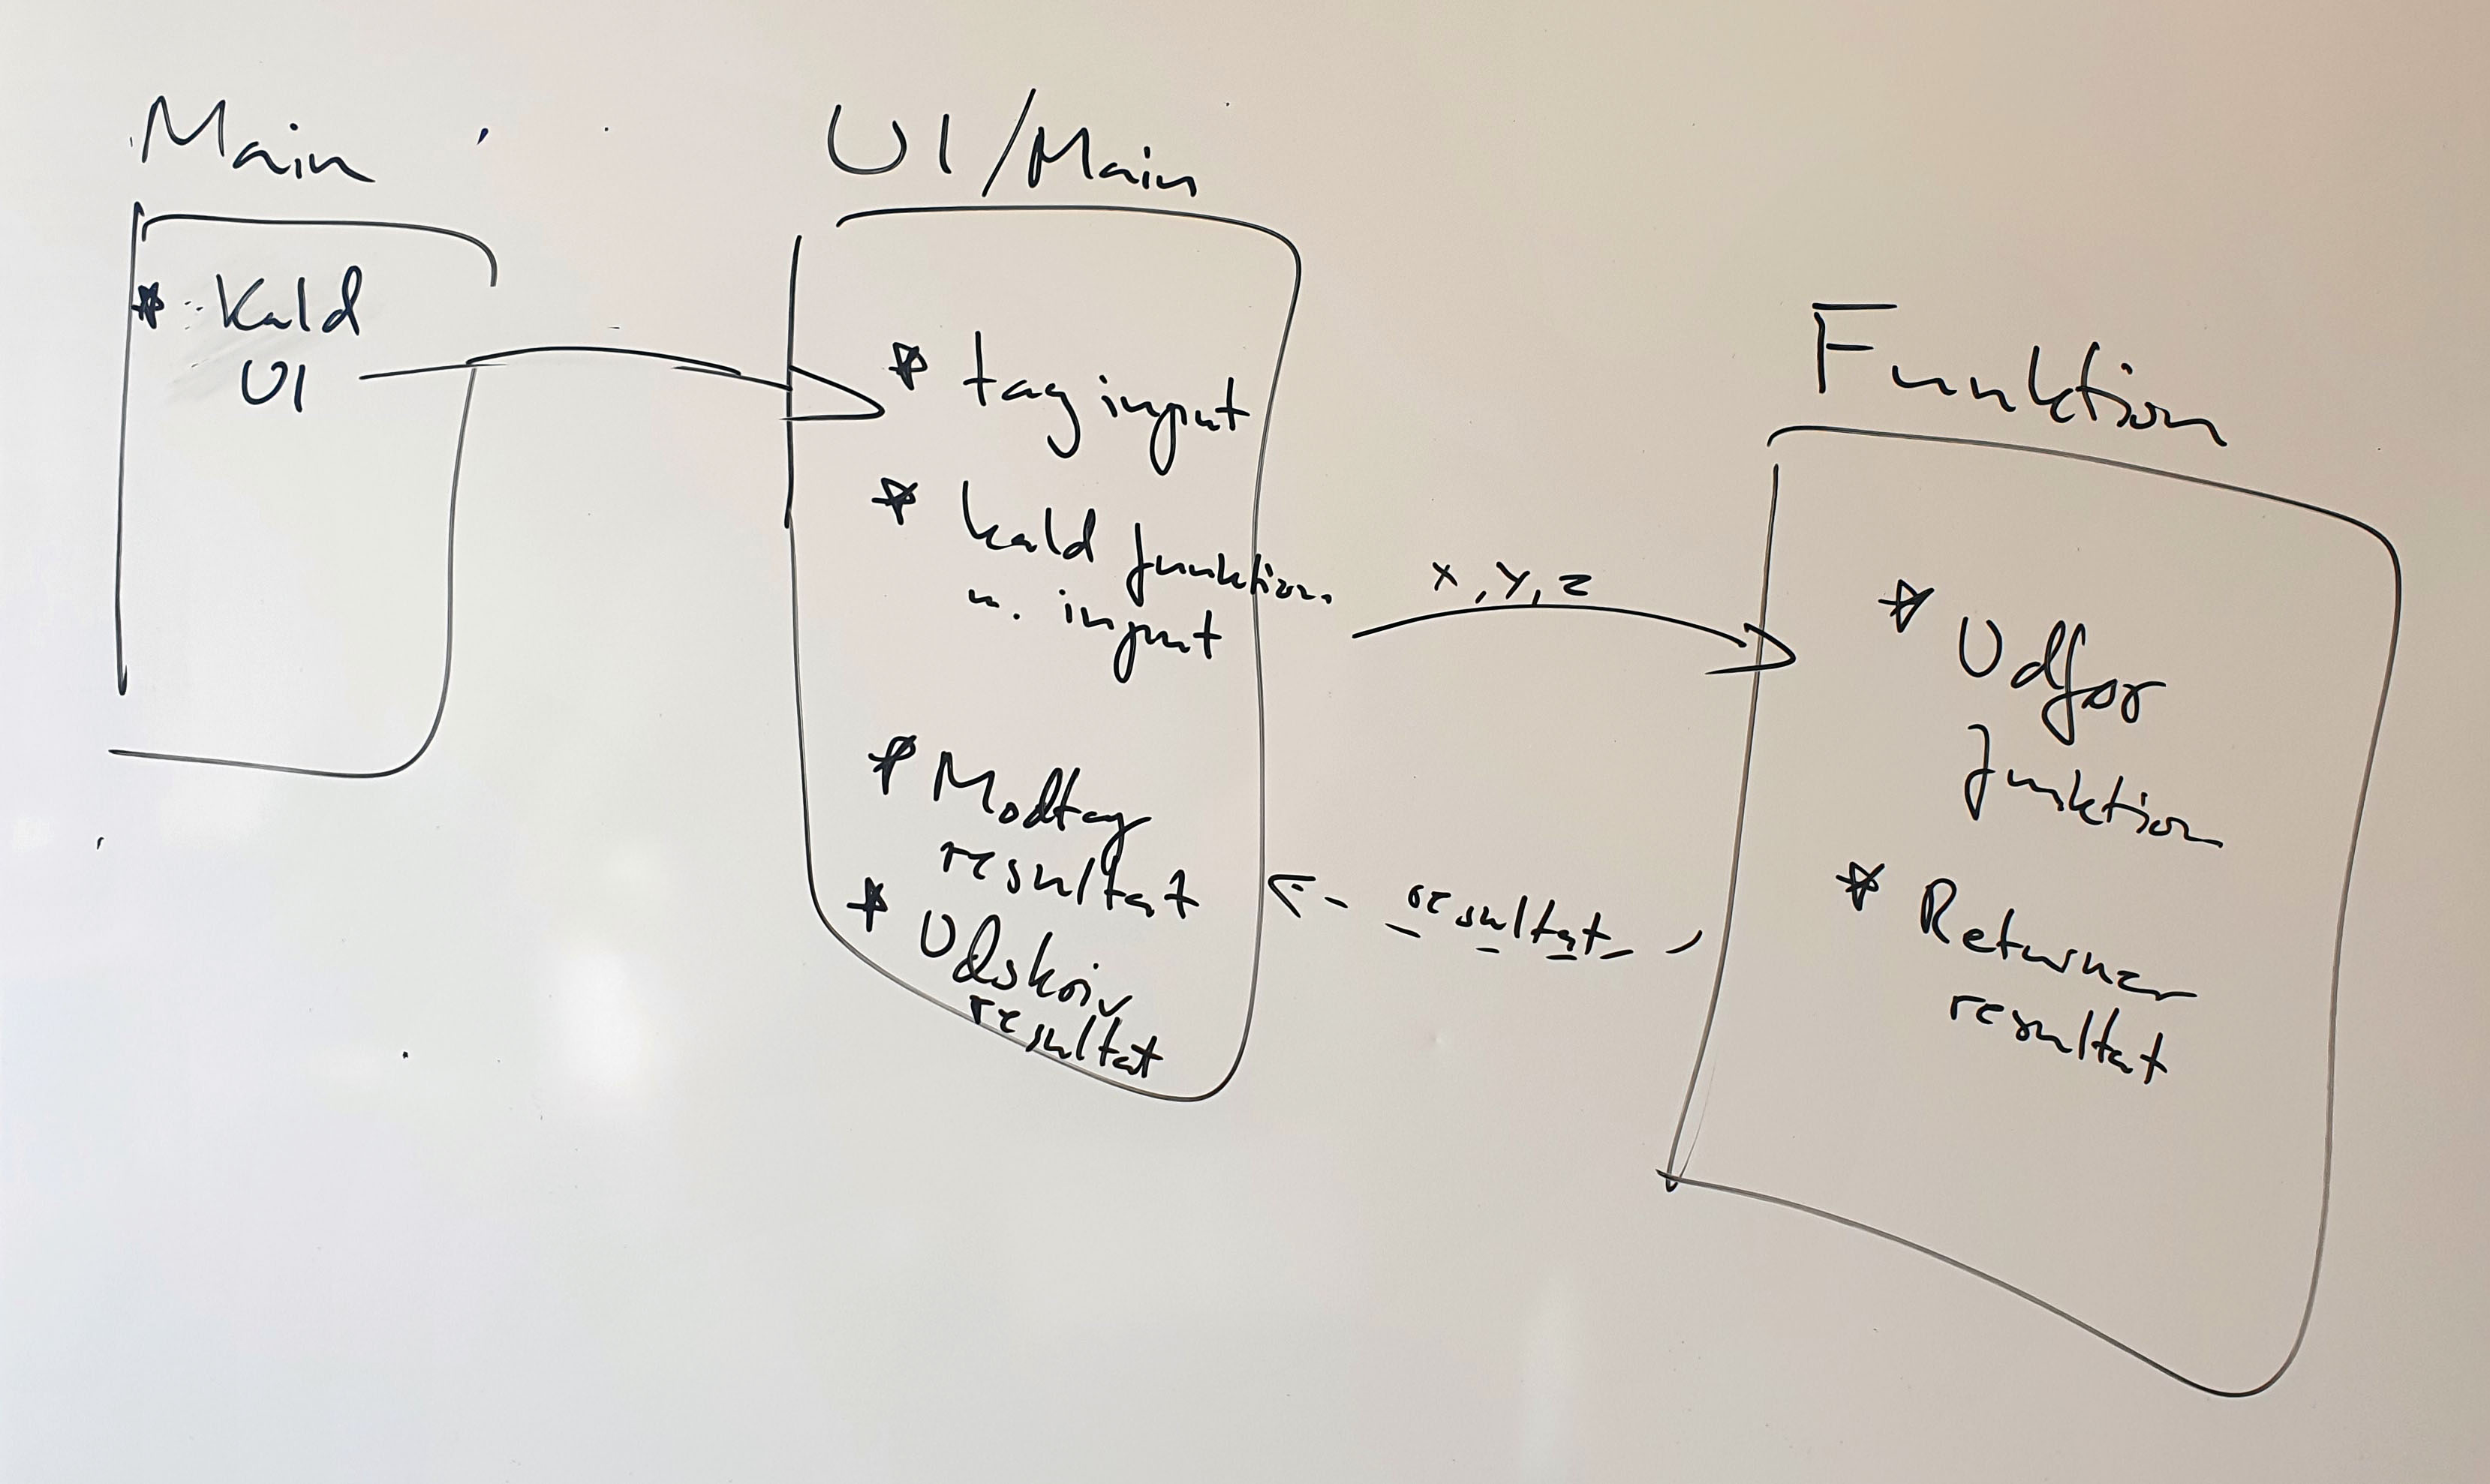 Main
* Kald
UI
UI/Main
* tag input
* kald funktion
m. input
* Modtag
resultat
* Udskriv
resultat
x, y, z
resultat
Funktion
* Udfør
funktion
* Returner
resultat